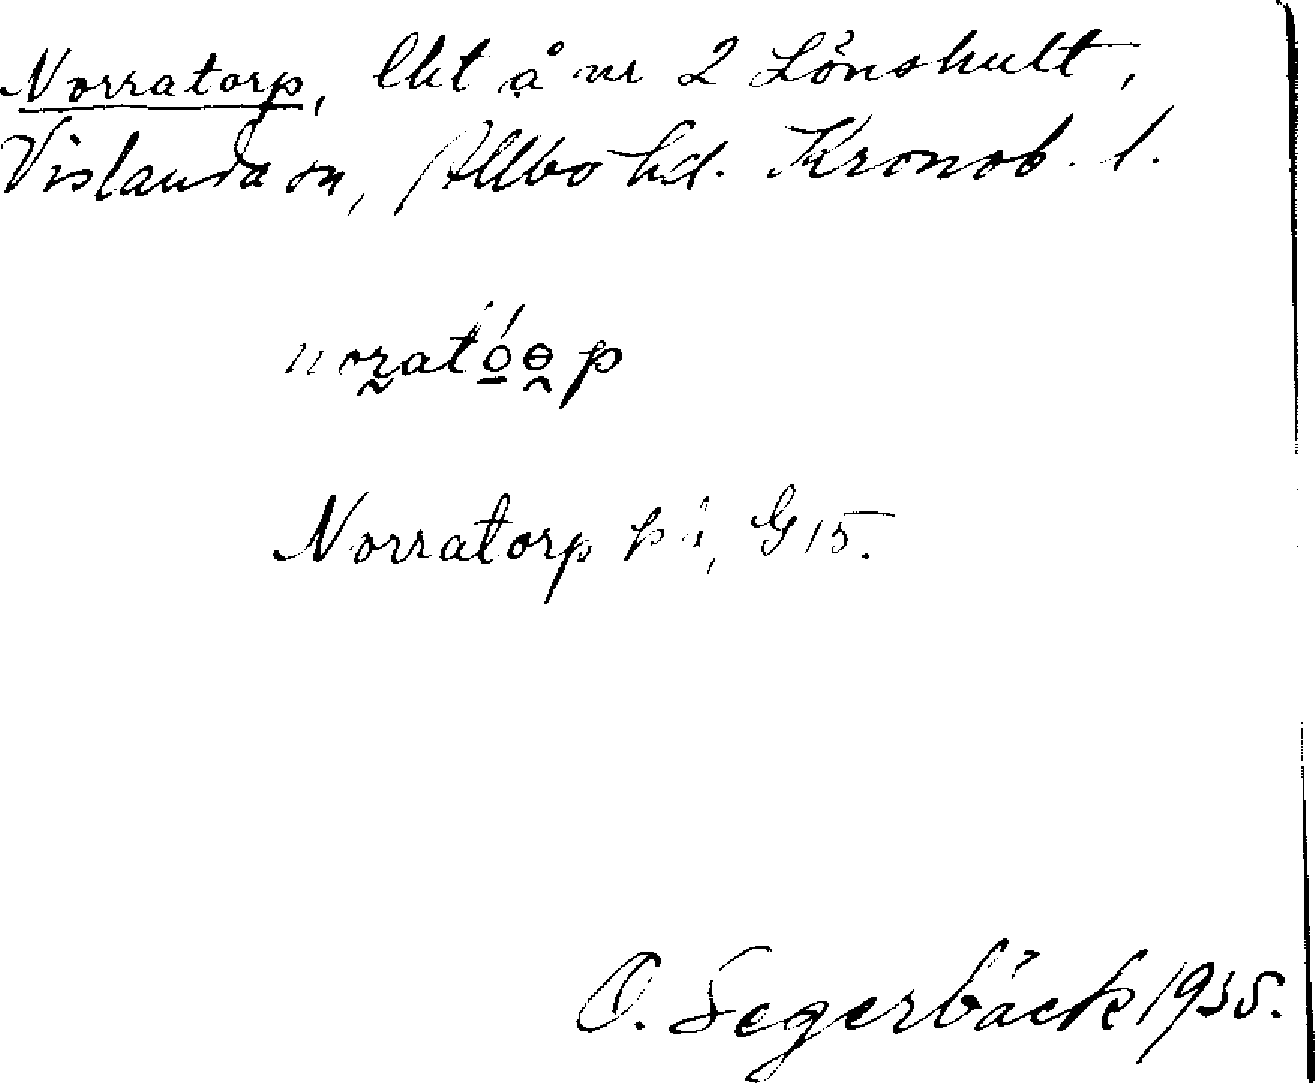 Norratorp, lht å nr 2 Lönshult,
Vislanda sn, Allbo hd. Kronob. l.
Norratorp på, G15.
O. Segerbäck 1935.